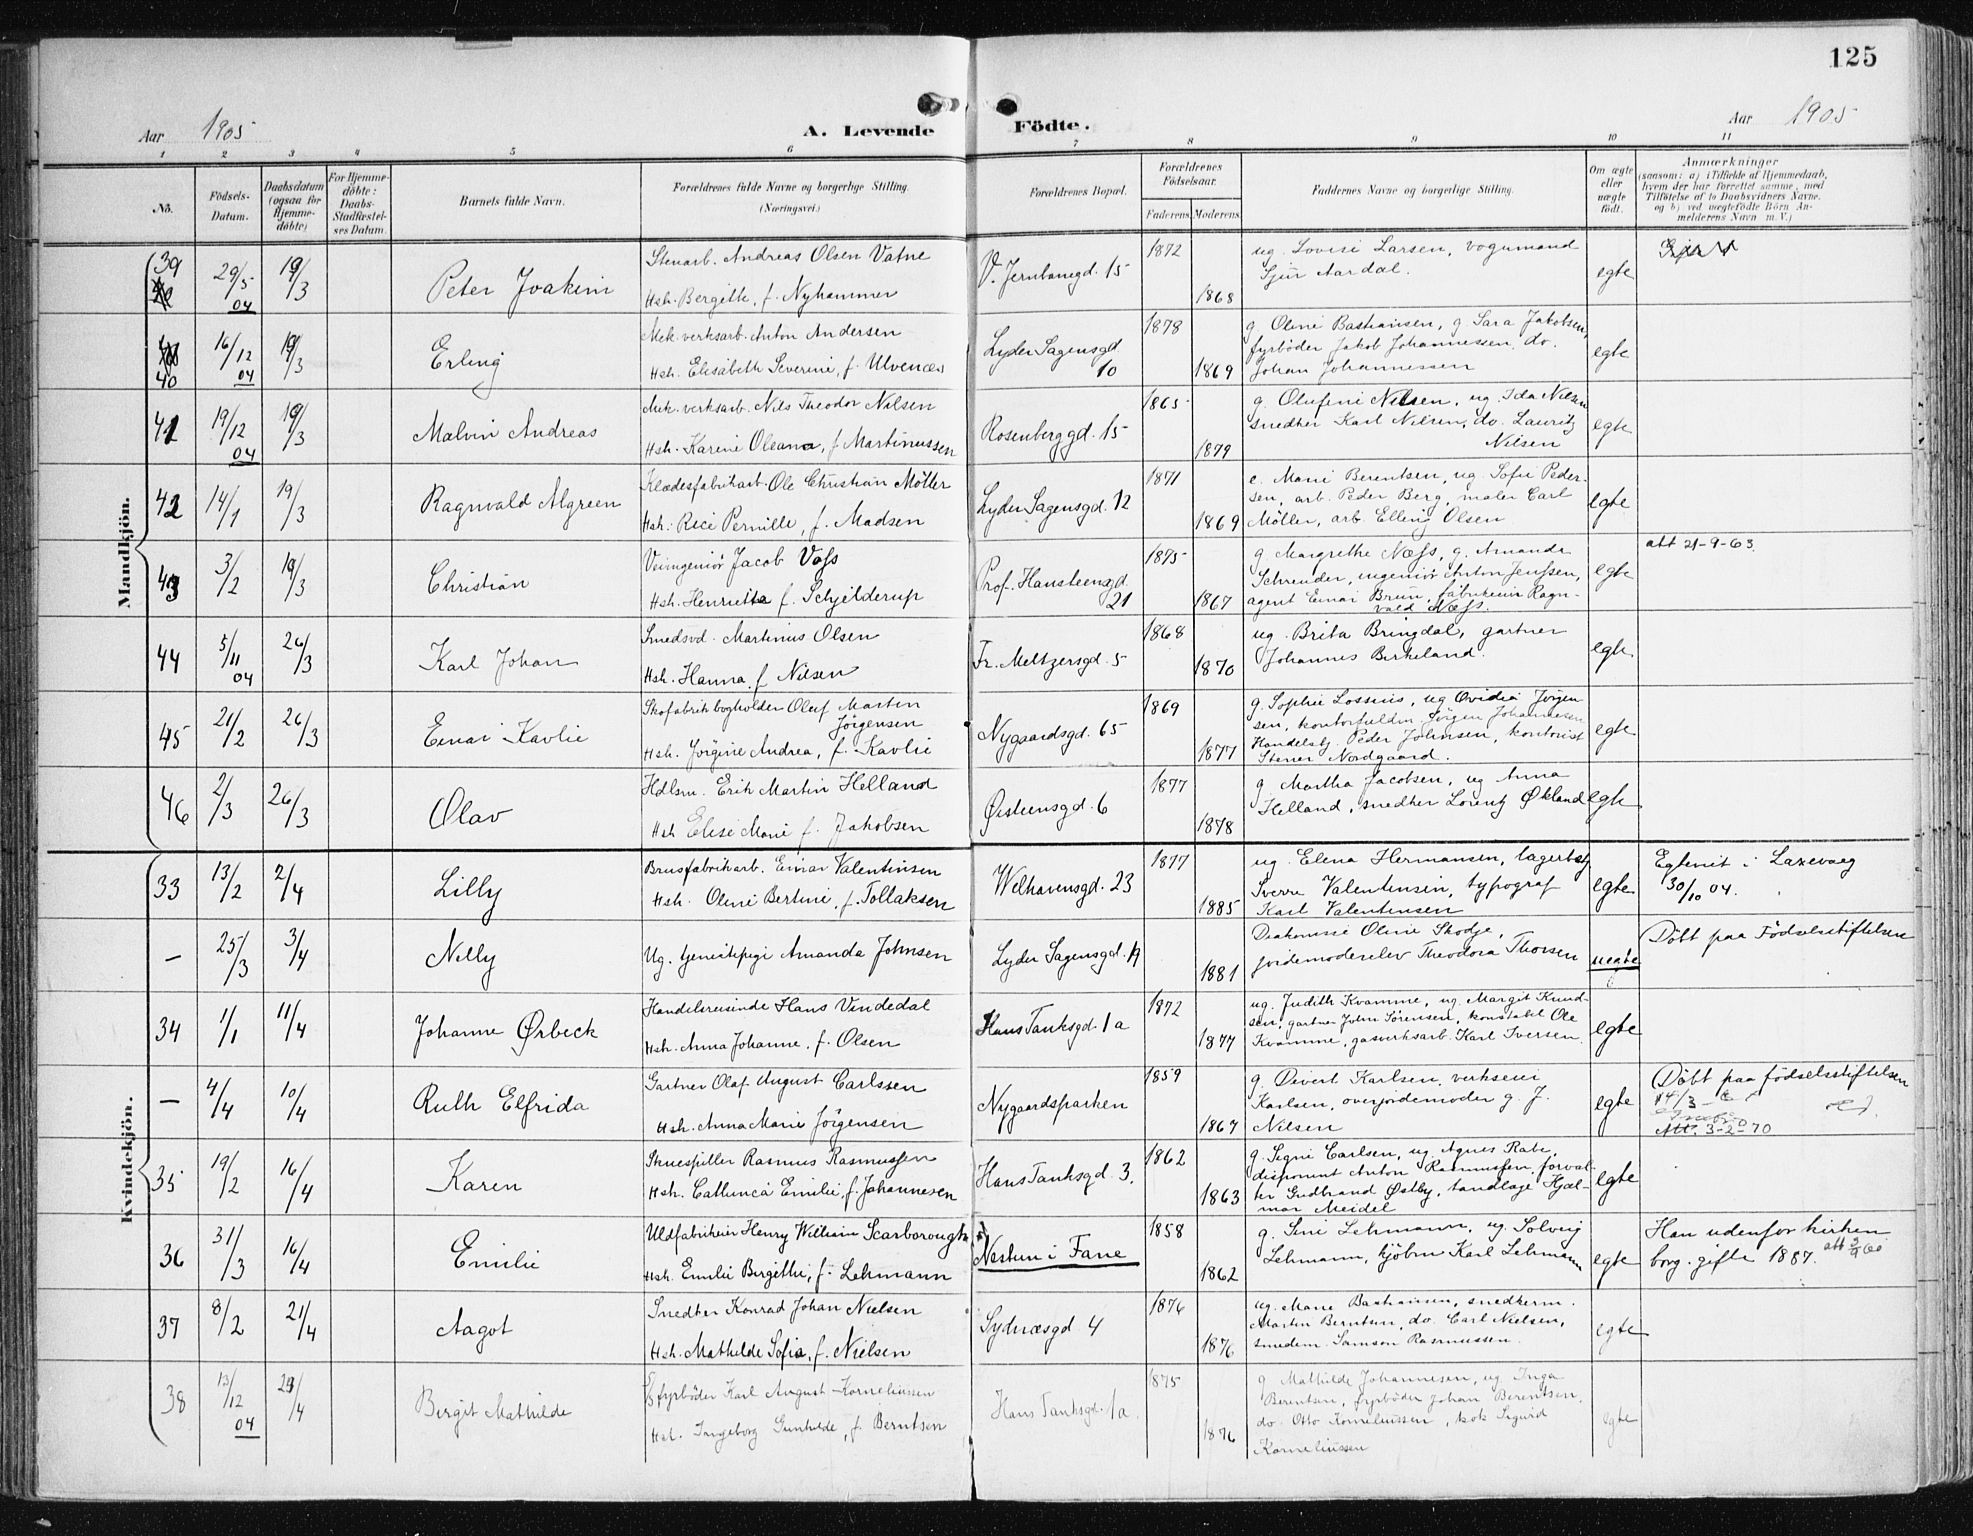 125
Aar 1905
A. Levende Födte.
Aar 1905
1 2 3 4 5 6 7 8 9 10 11
No.
Födsels-Datum.
Daabsdatum (ogsaa for Hjemme-döbte)
For Hjemme-döbte: Daabs-Stadfæstel-ses Datum.
Barnets fulde Navn.
Forældrenes fulde Navne og borgerlige Stilling.
(Næringsvei.)
Forældrenes Bopæl.
Forældrenes Födselsaar.
Faderens. Moderens.
Faddernes Navne og borgerlige Stilling.
Om ægte eller uægte födt.
Anmærkninger
(saasom: a) i Tilfælde af Hjemmedaab, hvem der har forrettet samme, med Tilföielse af to Daabsvidners Navne. og b) ved uægtefödte Börn An-melderens Navn m. V.)
Mandkjön.
39 29/5 04 19/3 Peter Joakim
Stenarb. Andreas Olsen Vatne
Hsh. Bergitte, f. Nyhammer
V. Jernbanegd. 15 1872 1868
ug. Lovise Larsen, vognmand
Sjur Aardal.
egte
40 16/12 04 19/3 Erling
Mek. verksarb. Anton Andersen
Hsh. Elisabeth Severine, f. Ulvenæs
Lyder Sagensgd. 10 1878 1869
g. Oline Bastiansen, g. Sara Jakobsen,
fyrböder Jakob Johannessen, do.
Johan Johannessen
egte
41 19/12 04 19/3 Malvin Andreas
Mek. verksarb. Nils Theodor Nilsen
Hsh. Karine Oleana, f. Martinussen
Rosenberggd. 15 1865 1879
g. Olufine Nilsen, ug. Ida Nilsen
snedker Karl Nilsen, do. Lauritz
Nilsen
egte
42 14/1 19/3 Ragnvald Algreen
Klædesfabrikarb. Ole Christian Möller
Hsh. Rece Pernille, f. Madsen
Lyder Sagensgd. 12 1871 1869
e. Marie Berentsen, ug. Sofie Peder-
sen, arb. Peder Berg, maler Carl
Möller, arb. Elling Olsen
egte
43 3/2 19/3 Christian
Veiingeniör Jacob Vofs
Hsh. Henriette f. Schjelderup
Prof. Hansteensgd. 21 1875 1867
g. Margrethe Næfs, g. Amanda
Schreuder, ingeniör Anton Jenfsen,
agent Einar Brun, fabrikeier Ragn-
vald Næfs.
egte
att 21-9-63.
44 5/11 04 26/3 Karl Johan
Smedsvd. Martinus Olsen
Hsh. Hanna f. Nilsen
Fr. Meltzersgd. 5 1868 1870
ug. Brita Bringdal, gartner
Johannes Birkeland.
egte.
45 21/2 26/3 Einar Kavlie
Skofabrik bogholder Oluf Martin
Jörgensen
Hsh. Jörgine Andrea, f. Kavlie
Nygaardsgd. 65 1869 1877
g. Sophie Lossius, ug. Ovidia Jörgen
sen, kontorfuldm. Jörgen Johannesen
Handelsbj. Peder Johnsen, kontorist
Stener Nordgaard.
egte
46 2/3 26/3 Olav
Hdlsm. Erik Martin Helland
Hsh Elise Marie f. Jakobsen
Østeensgd. 6 1877 1878
g. Martha Jacobsen, ug Anna
Helland, snedker Lorentz Økland
egte
Kvindekjön.
33 13/2 2/4 Lilly
Brusfabrikarb. Einar Valentinsen
Hsh. Oline Bertine, f. Tollaksen
Welhavensgd. 23 1877 1885
ug. Elena Hermansen, lagerbetj
Sverre Valentinsen, typograf
Karl Valentinsen
egte
Egteviet i Laxevaag
30/10 04.
— 25/3 3/4 Nelly
Ug. tjenestepige Amanda Johnsen
Lyder Sagensgd. 19 1881
Diakonisse Oline Skodje,
jordemoderelev Theodora Thorsen
uegte
Döbt paa Födselsstiftelsen
34 1/1 11/4 Johanne Ørbeck
Handelsreisende Hans Vindedal
Hsh. Anna Johanne, f. Olsen
Hans Tanksgd. 1a 1872 1877
ug. Judith Kvamme, ug. Margit Knud-
sen, gartner John Sörensen, konstabel Ole
Kvamme, gasverksarb. Karl Iversen.
egte
— 4/4 10/4 Ruth Elfrida
Gartner Olaf August Carlssen
Hsh. Anna Marie Jörgensen
Nygaardsparken 1859 1867
g. Sivert Karlsen, verkseier
Karlsen, overjordemoder g. J.
Nilsen
egte
Döbt paa födselsstiftelsen
Att. 3-2-70
35 19/2 16/4 Karen
Skuespiller Rasmus Rasmussen
Hsh. Cathinca Emilie, f. Johannesen
Hans Tanksgd 3. 1862 1863
g. Signe Carlsen, ug. Agnes Rabe,
disponent Anton Rasmussen, forval-
ter Gudbrand Østby, tandlæge Hjal-
mar Meidel
egte
36 31/3 16/4 Emilie
Uldfabrikeier Henry William Scarborough
Hsh. Emilie Birgithe, f. Lehmann
Nestun i Fane 1858 1862
g. Sini Lehmann, ug. Solveig
Lehmann, kjöbm Karl Lehmann
egte
Han udenfor kirken
borg. gifte 1887.
37 8/2 21/4 Aagot
Snedker Konrad Johan Nielsen
Hsh. Mathilde Sofia, f. Nielsen
Sydnæsgd 4 1876 1876
ug. Marie Bastiansen, snedkerm.
Martin Berntsen, do. Carl Nielsen,
smedem. Samson Rasmussen.
egte
38 13/12 04 23/4 Birgit Mathilde
fyrböder Karl August Korneliussen
Hsh. Ingeborg Gunhilde, f. Berntsen
Hans Tanksgd. 1a. 1875 1876
g. Mathilde Johannesen, ug. Inga
Berentsen, fyrböder Johan Berentsen,
do. Otto Korneliussen, kok Sigurd
Korneliussen
egte